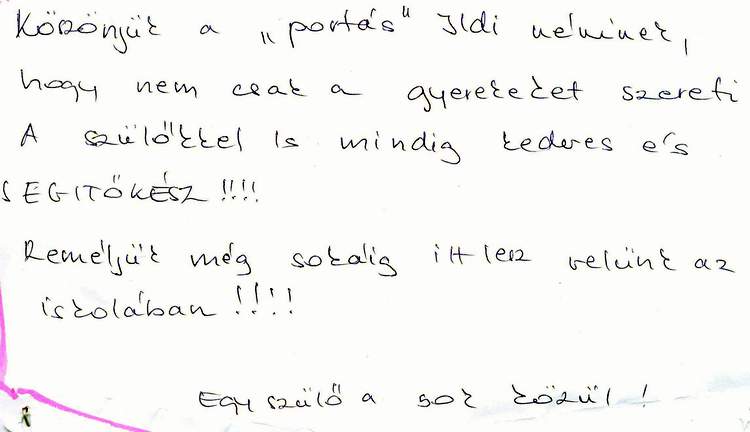 Köszönjük a „portás" Ildi néninek,
hogy nem csak a gyerekeket szereti
A szülőkkel is mindig kedves és
SEGITŐKÉSZ !!!!
Reméljük még sokáig itt lesz velünk az
iskolában !!!!
Egy szülő a sok közül !